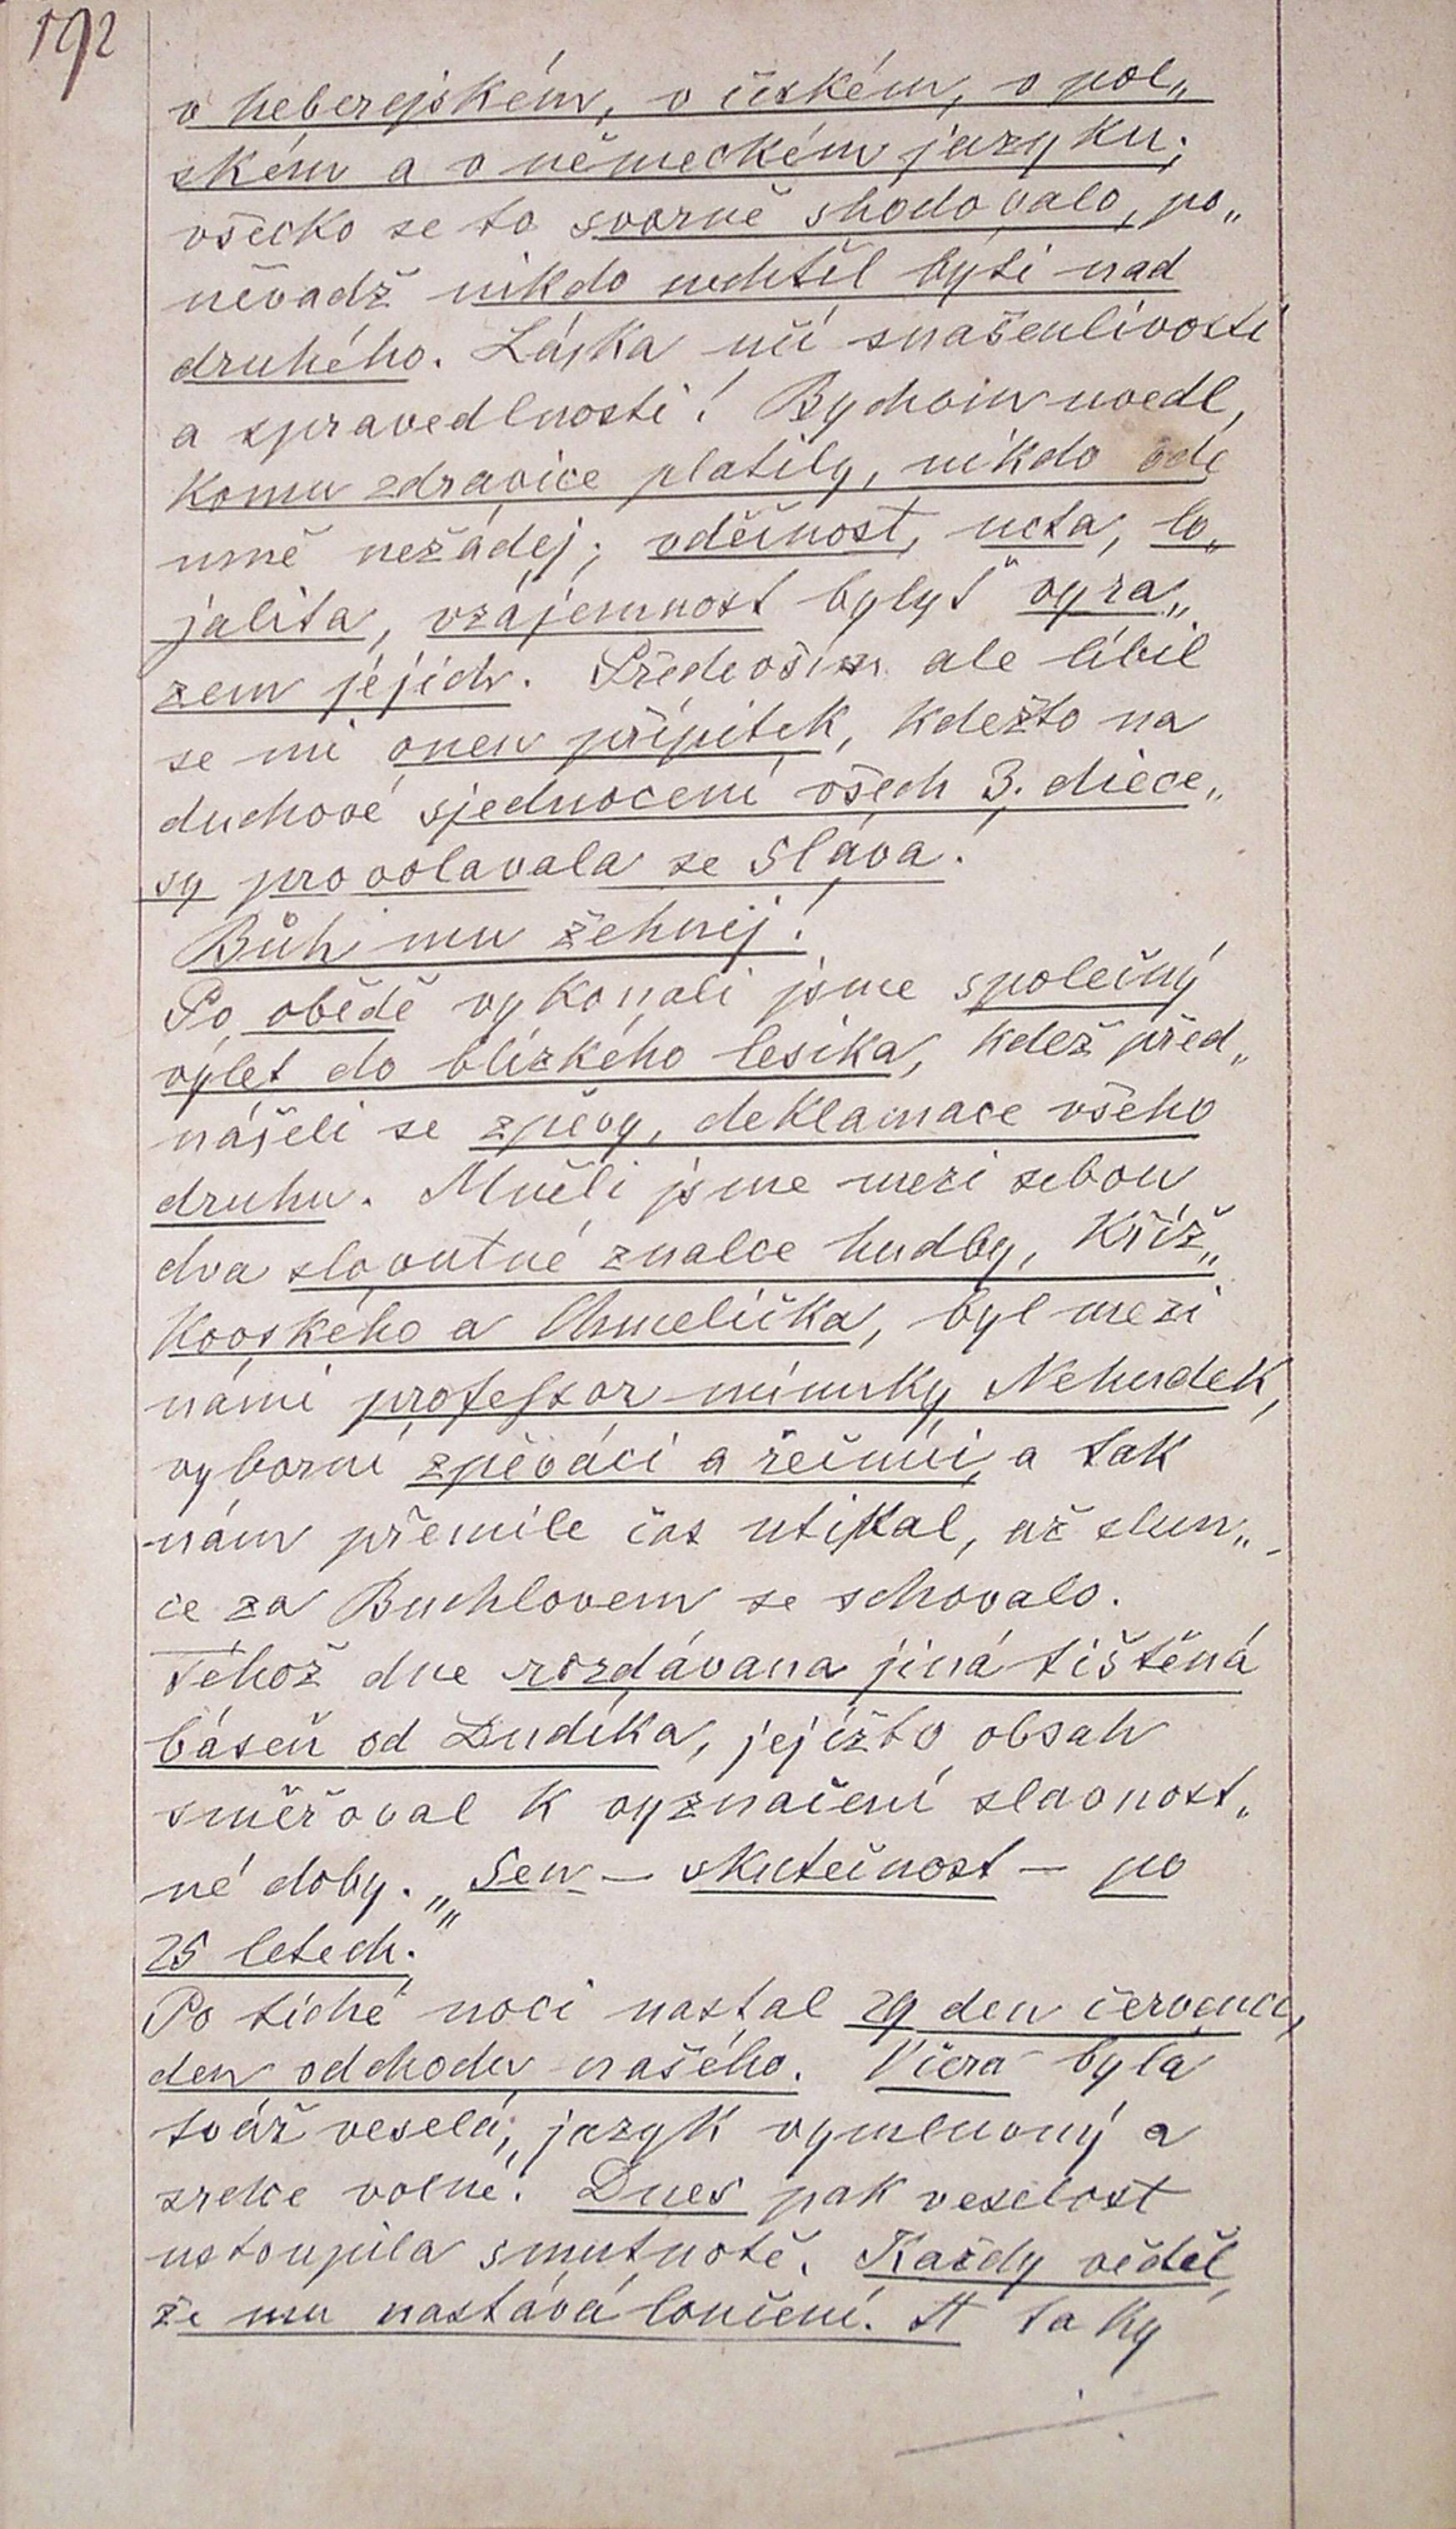 192
v heberejském, v českém, v pol„
ském a v německém jazyku;
všecko se to svorně shodovalo, po„
něvadž nikdo nechtěl býti nad
druhého. Láska učí snášenlivosti
a spravedlnosti! Bychom uvedl,
komu zdravice platily, nikdo ode
mně nežádej; vděčnost, ucta, lo„
jalita, vzájemnost bylyť vyra„
zem jéjich. Předevšim ale líbil
se mi onen přípitek, kdežto na
duchové sjednocení všech 3. diece„
sy provolavala se Sláva!
Bůh mu žehnej!
Po obědě vykonali jsme společný
výlet do blízkého lesíka, kdež před„
nášeli se zpěvy, deklamace všeho
druhu. Měli jsme mezi sebou
dva slovutné znalce hudby, Kříž„
kovského a Chmelíčka, byl mezi
námi professor mimiky Nehudek,
vyborní zpěváci a řečníci, a tak
nám přemile čas utikal, až slun„
ce za Buchlovem se schovalo.
Téhož dne rozdávana jiná tištěná
báseň od Dudíka, jejížto obsah
směřoval k vyznačení slavnost„
né doby. „„Sen — skutečnost — po
25 letech.““
Po tiché noci nastal 29 den července,
den odchodu našého. Včera byla
tvář veselá; jazyk vymluvný a
srdce volné! Dnes pak veselost
ustoupila smutnotě. Každy věděl
že mu nastává loučení. A taky